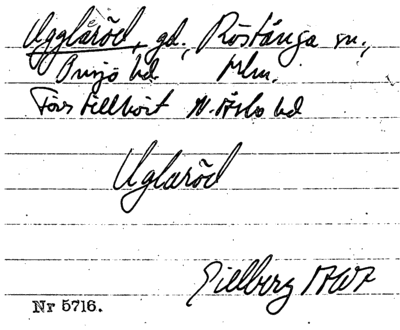 Ugglaröd, gd., Röstånga sn.,
Onsjö hd. Mlm.
Förr tillhört N. Åsbo hd
Uglaröd
Gillberg 1767
Nr 5716.